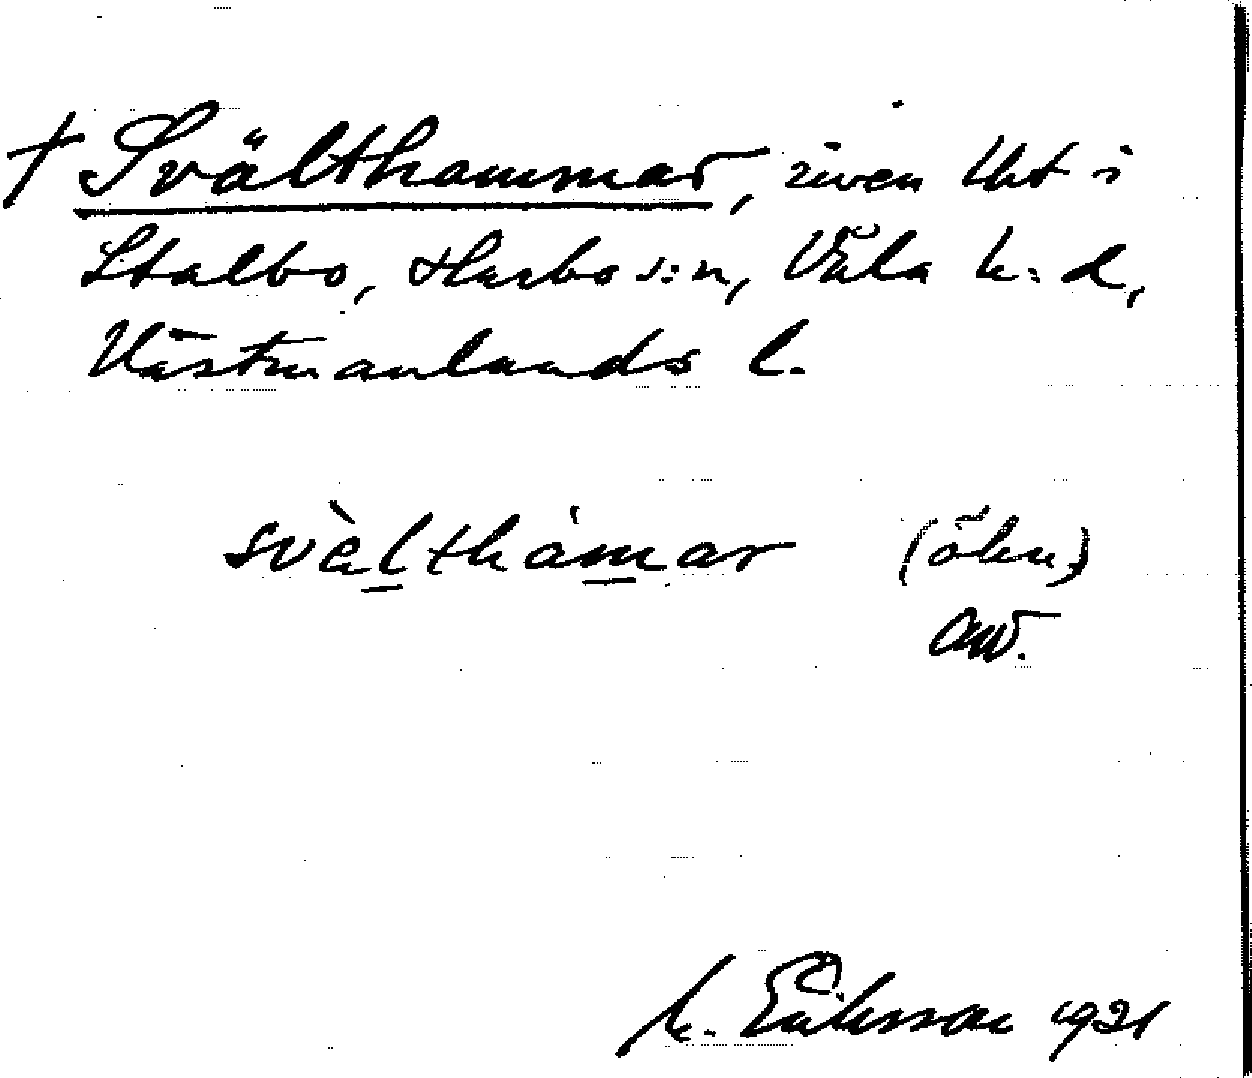 † Svälthammar, riven lht i
Stalbo, Harbo s:n, Våla h:d,
Västmanlands l.
svèlthámar (ökn)
M. Eriksson 1931